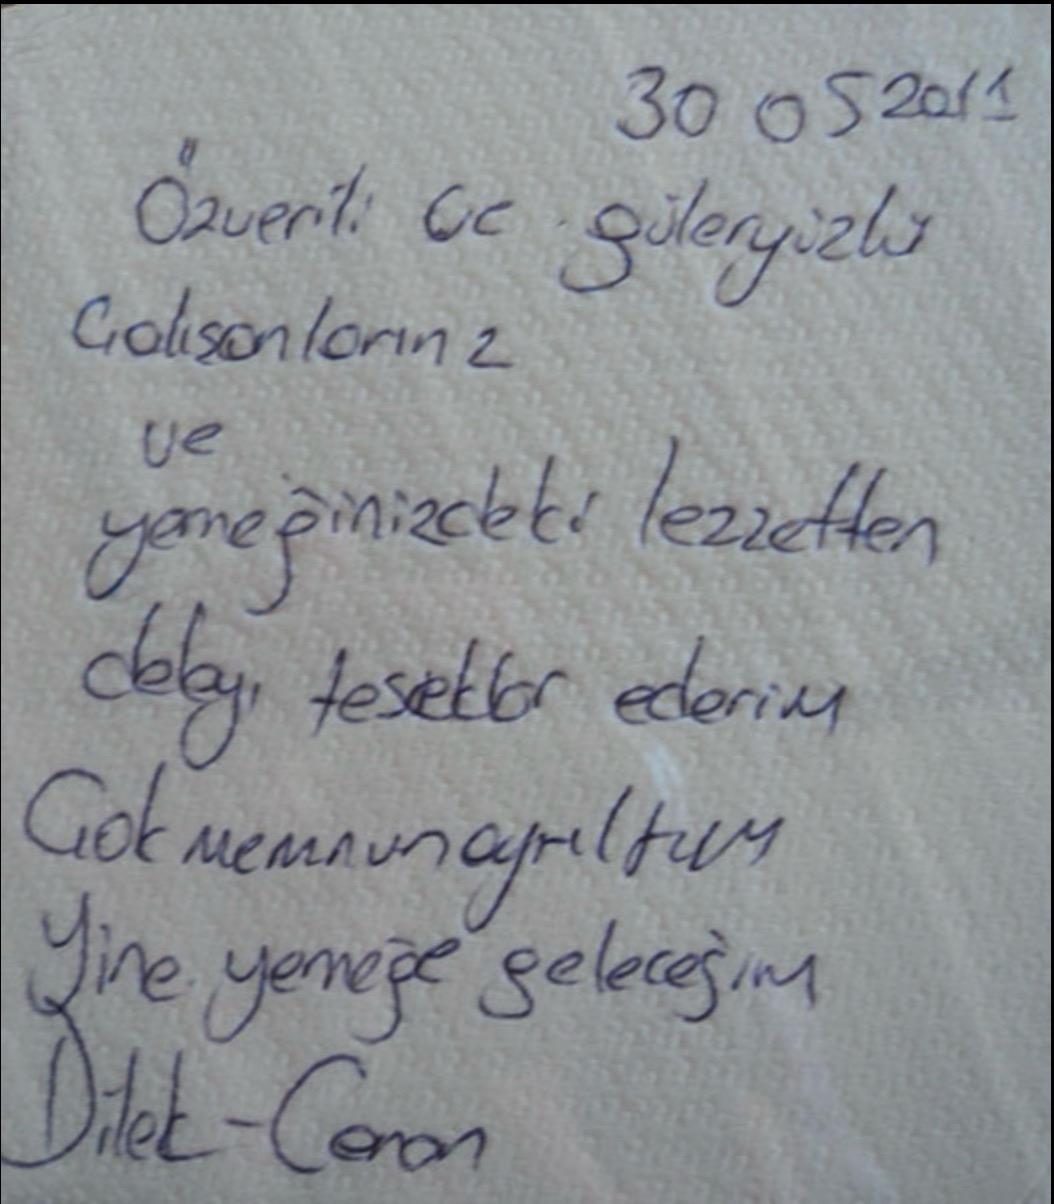 30 05 2011
Özverili ve güleryüzlü
Calısanlarınz
ve
yemeğinizdeki lezzetten
dolayı tesekkür ederim
Cok memnun ayrıltım
Yine yemeğe geleceğim
Dilek - Canan